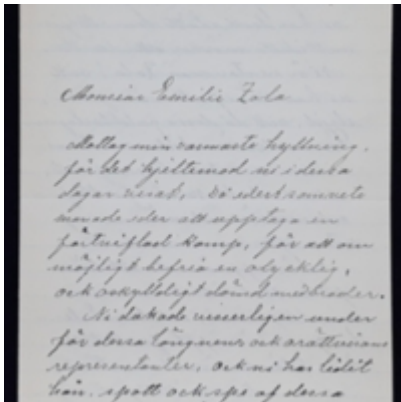 Monsiar Emilie Zola
Mottag min varmaste hyllning,
för det hjeltemod ni i dessa
dagar visat, då edert samvete
manade eder att upptaga en
förtviflad kamp, för att om
möjligt befria en olycklig,
och oskyldigt dömd medbroder.
Ni dukade visserligen under
för dessa lögnens och orättvisans
representanter, och ni har lidit
hån, spott och spe af dessa